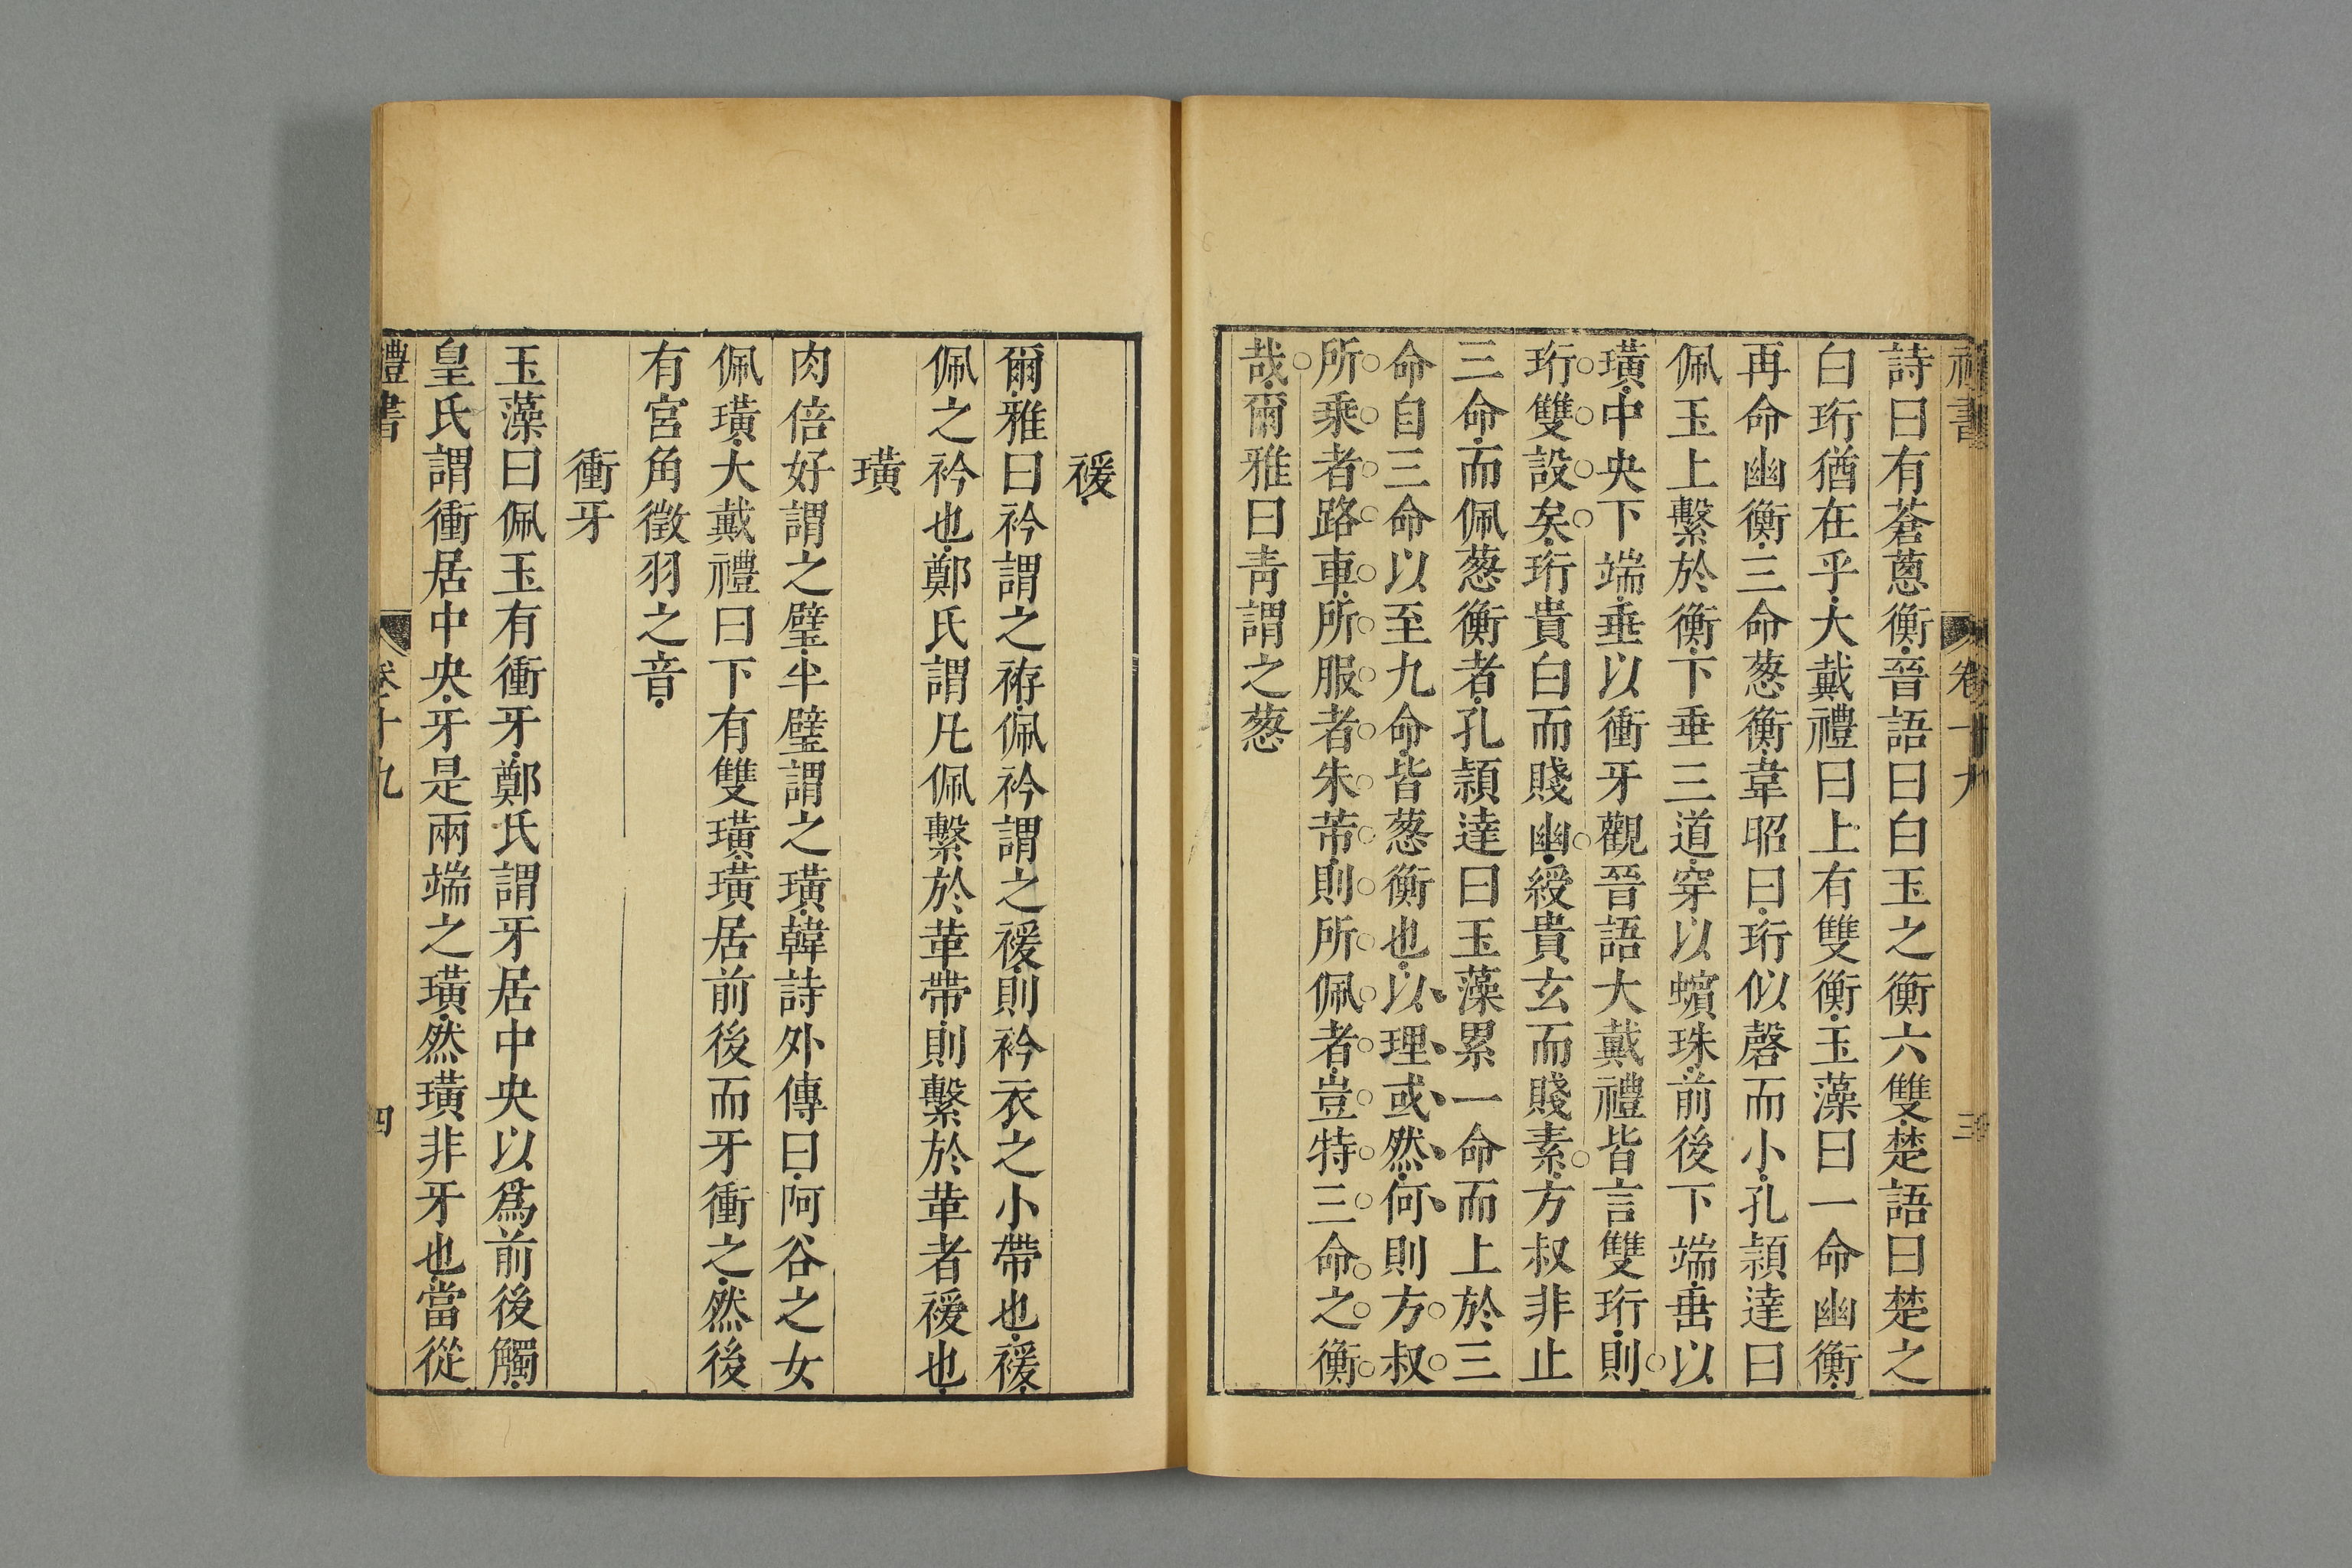 禮書 卷十九 三
詩曰有蒼蔥衡晉語曰白玉之衡六雙楚語曰楚之
白珩猶在乎大戴禮曰上有雙衡玉藻曰一命幽衡
再命幽衡三命葱衡韋昭曰珩似磬而小孔頴達曰
佩玉上繫於衡下垂三道穿以蠙珠前後下端垂以
璜中央下端垂以衝牙觀晉語大戴禮皆言雙珩則
珩雙設矣珩貴白而賤幽綬貴玄而賤素方叔非止
三命而佩葱衡者孔頴達曰玉藻累一命而上於三
命自三命以至九命皆葱衡也以理或然何則方叔
所乘者路車所服者朱芾則所佩者豈特三命之衡
哉爾雅曰靑謂之葱
禐
爾雅曰衿謂之袸佩衿謂之禐則衿衣之小帶也禐
佩之衿也鄭氏謂凡佩繫於革帶則繫於革者禐也
璜
肉倍好謂之璧半璧謂之璜韓詩外傳曰阿谷之女
佩璜大戴禮曰下有雙璜璜居前後而牙衝之然後
有宮角徵羽之音
衝牙
玉藻曰佩玉有衝牙鄭氏謂牙居中央以爲前後觸
皇氏謂衝居中央牙是兩端之璜然璜非牙也當從
禮書 卷十九 四